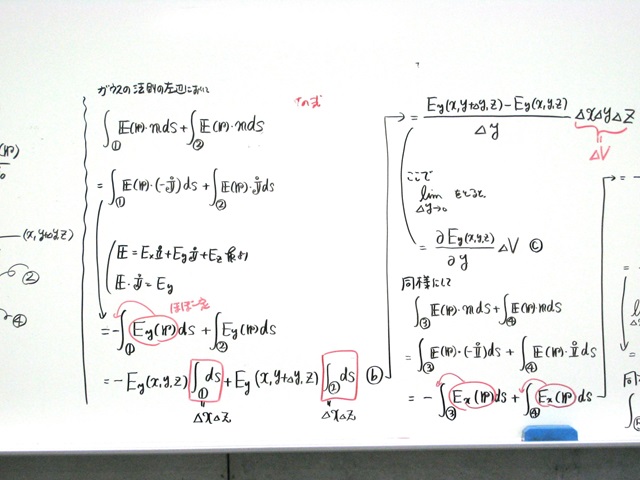 ガウスの法則の左辺において
∫① 𝔼(𝕣)·𝕟ds + ∫② 𝔼(𝕣)·𝕟ds
= ∫① 𝔼(𝕣)·(-𝕛)ds + ∫② 𝔼(𝕣)·𝕛ds
𝔼 = Ex𝕚 + Ey𝕛 + Ez𝕜 より
𝔼·𝕛 = Ey
ほぼ一定
= -∫① Ey(𝕣)ds + ∫② Ey(𝕣)ds
= -Ey(x,y,z) ∫① ds + Ey(x,y+Δy,z) ∫② ds ⓑ
ΔxΔz ΔxΔz
(x,y+Δy,z)
②
④
= (Ey(x,y+Δy,z) - Ey(x,y,z)) / Δy ΔxΔyΔz
ΔV
ここで
lim Δy→0 をとると
= ∂Ey(x,y,z)/∂y ΔV ⓒ
同様にして
∫③ 𝔼(𝕣)·𝕟ds + ∫④ 𝔼(𝕣)·𝕟ds
= ∫③ 𝔼(𝕣)·(-𝕚)ds + ∫④ 𝔼(𝕣)·𝕚ds
= -∫③ Ex(𝕣)ds + ∫④ Ex(𝕣)ds